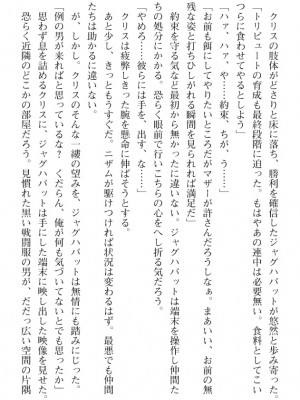 クリスの肢体がどさりと床に落ち、勝利を確信したジャグハバットが悠然と歩み寄った。
「トリビュートの育成も最終段階に迫った。もはやあの連中は必要無い。食料としてこい
つらに食わせてやるとしよう」
「ハァ、ハァ、や……約束、ちが、う……」
「お前も餌にしてやりたいところだがマザーが許さんだろうしなぁ。まあいい、お前の無
残な姿と打ちひしがれる瞬間を見られれば満足だ」
約束を守る気など最初から無かったに違いない。ジャグハバットは端末を操作し仲間た
ちの処分にかかる。恐らく眼前で行いこちらの心をへし折る気だろう。
「やめろ……彼らには手を、出す、な……」
クリスは疲弊しきった腕を懸命に伸ばそうとする。
あと少し、きっともうすぐだ。ニザムが駆けつければ状況は変わるはず。最悪でも仲間
たちは助かるに違いない。
が、しかし。クリスのそんな一縷の望みを、ジャグハバットは無情にも踏みにじる。
「例の男が来ればと思っているな？くだらん。俺が何も気づいてないとでも思ったか」
思わず息を詰めるクリスに、ジャグハバットは手にした端末に映し出した映像を見せた。
恐らく近隣のどこかの部屋だろう。見慣れた黒い戦闘服の男が、だだっ広い空間の片隅